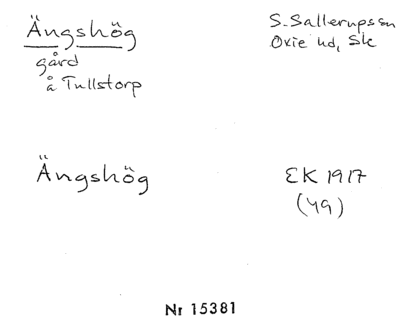 Ängshög
gård
å Tullstorp
S. Sallerups sn
Oxie hd, Sk
Ängshög
EK 1917
(49)
Nr 15381